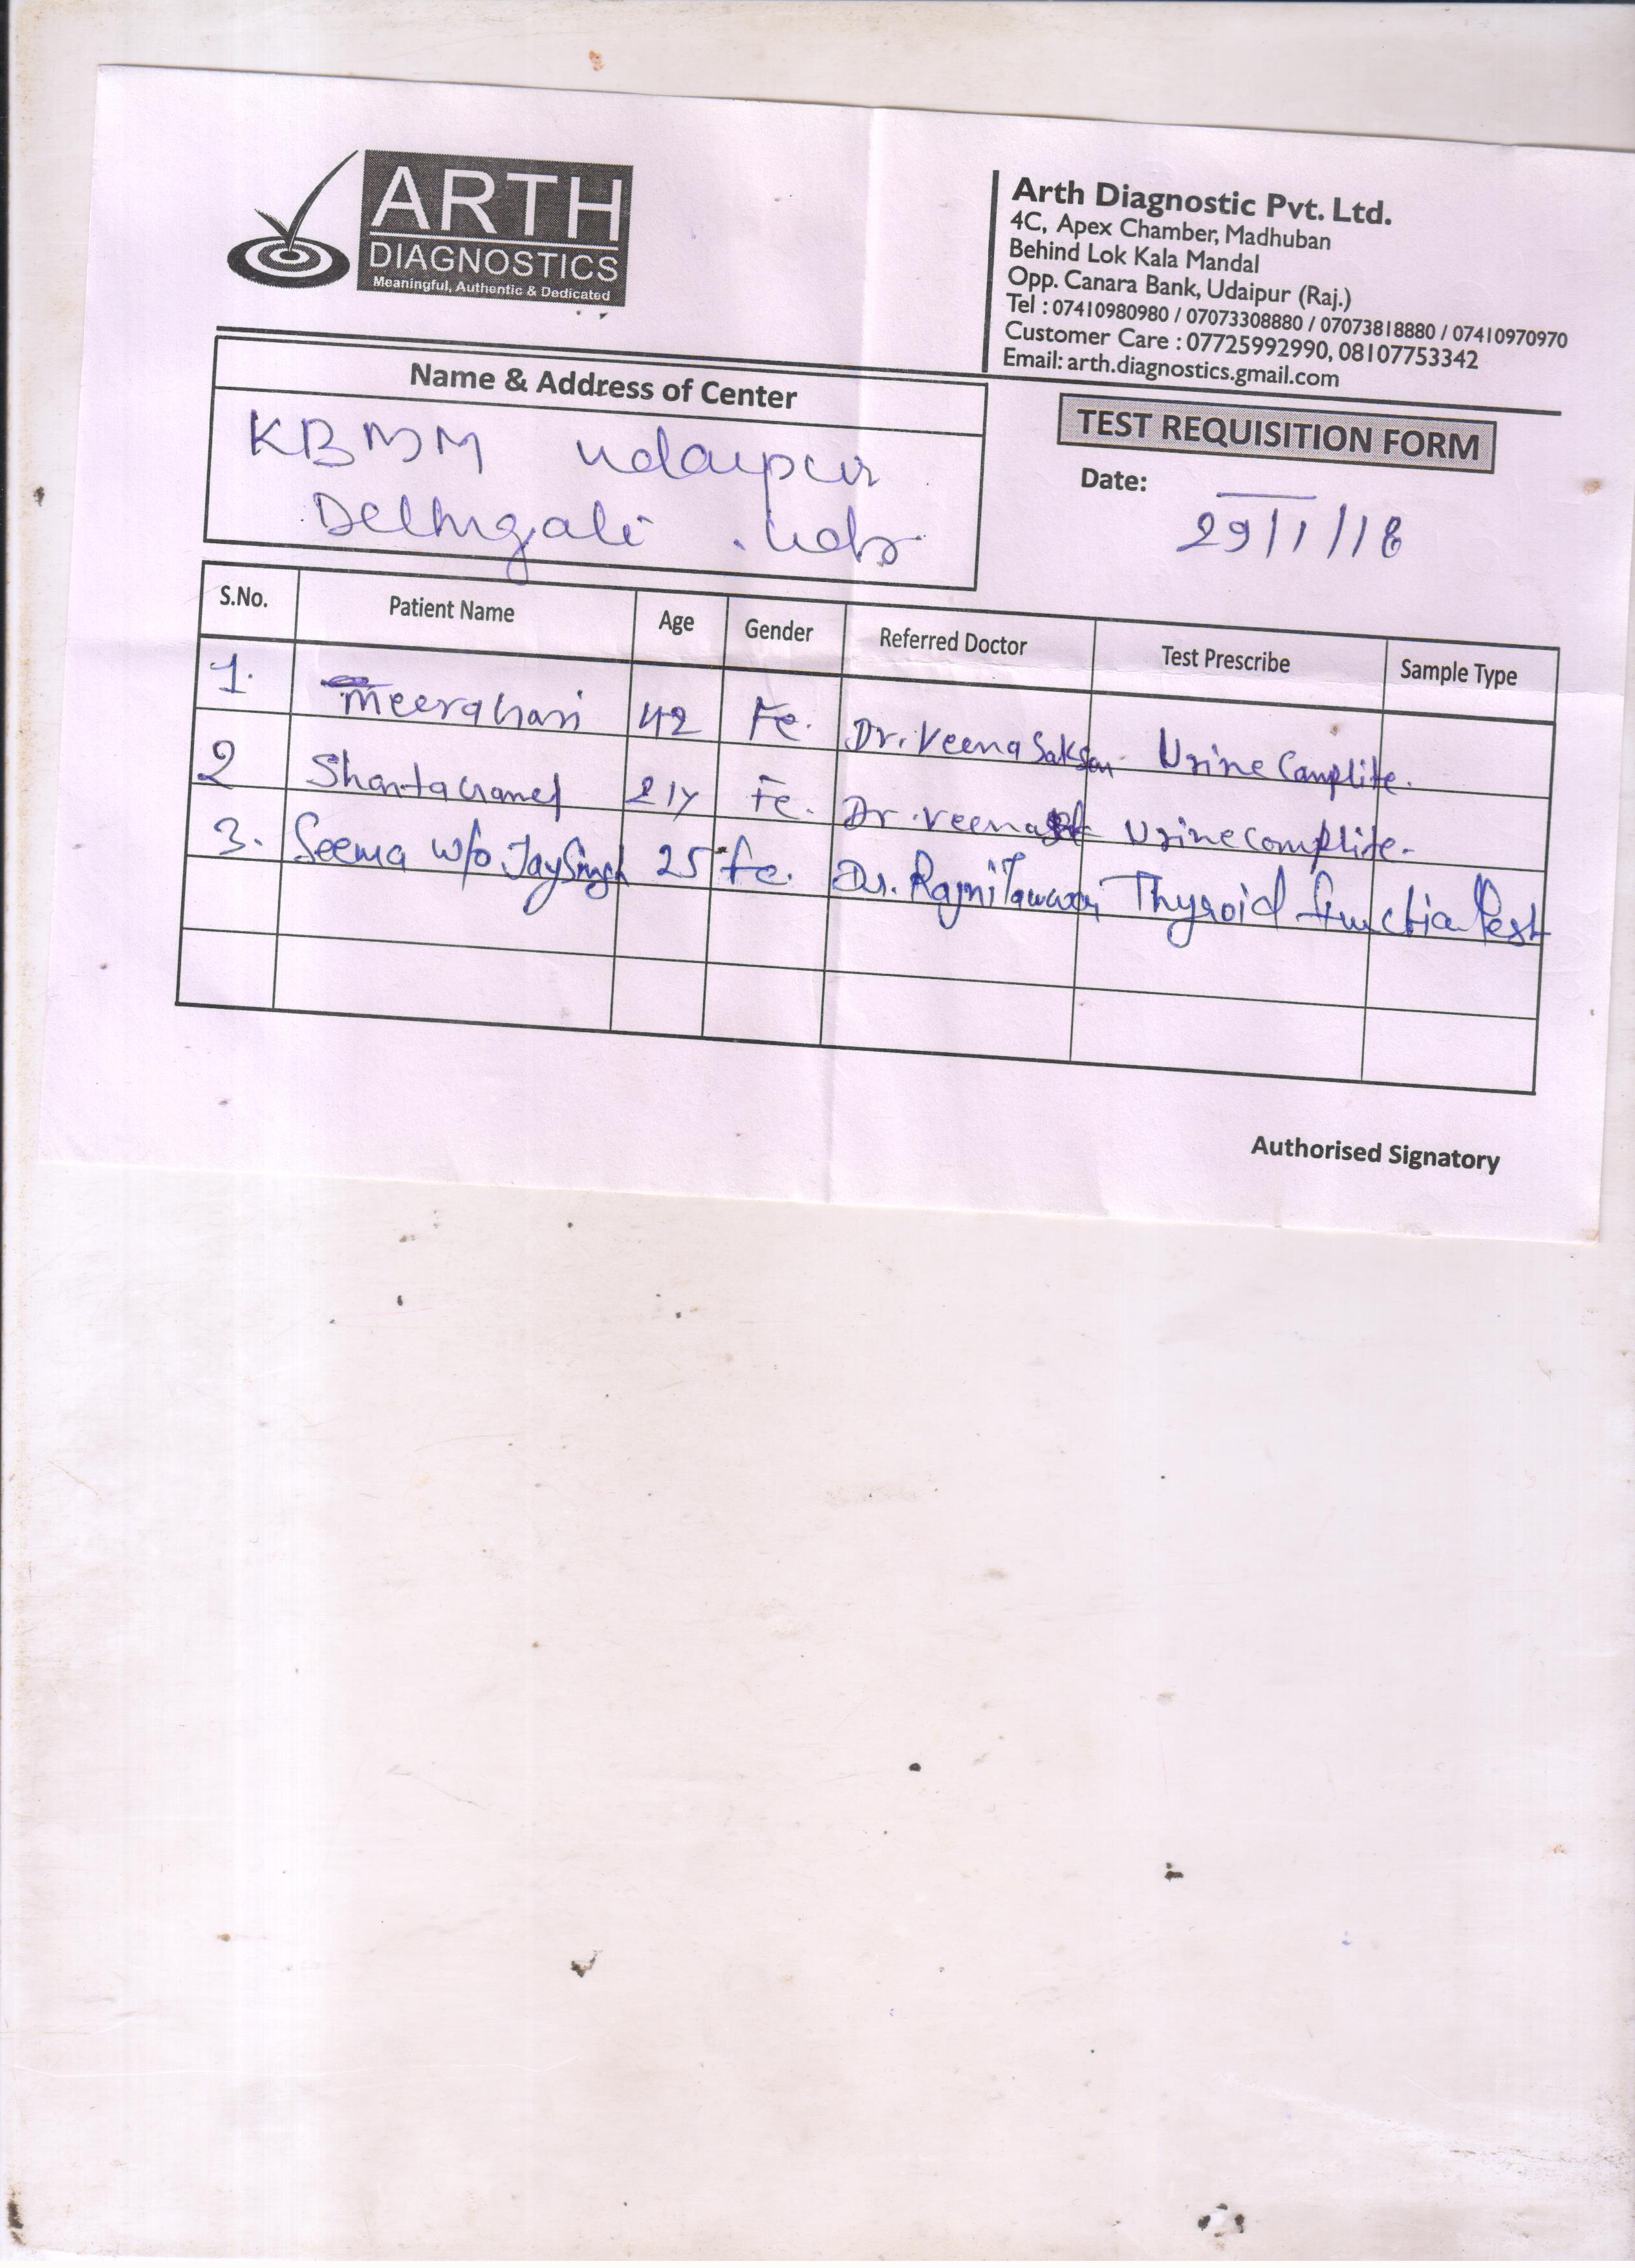 ARTH
DIAGNOSTICS
Meaningful, Authentic & Dedicated
Arth Diagnostic Pvt. Ltd.
4C, Apex Chamber, Madhuban
Behind Lok Kala Mandal
Opp. Canara Bank, Udaipur (Raj.)
Tel : 07410980980 / 07073308880 / 07073818880 / 07410970970
Customer Care : 07725992990, 08107753342
Email: arth.diagnostics.gmail.com
Name & Address of Center
KBMM Udaipur
Delhigali
TEST REQUISITION FORM
Date:
29/1/18
S.No. Patient Name Age Gender Referred Doctor Test Prescribe Sample Type
1. 42 Fe. Dr. Veena Urine Complite.
2 Shanta 21y Fe. Dr. veena Urine complite.
3. Seema w/o Jay Singh 25 fe. Dr. Rajni Thyroid function Test
Authorised Signatory